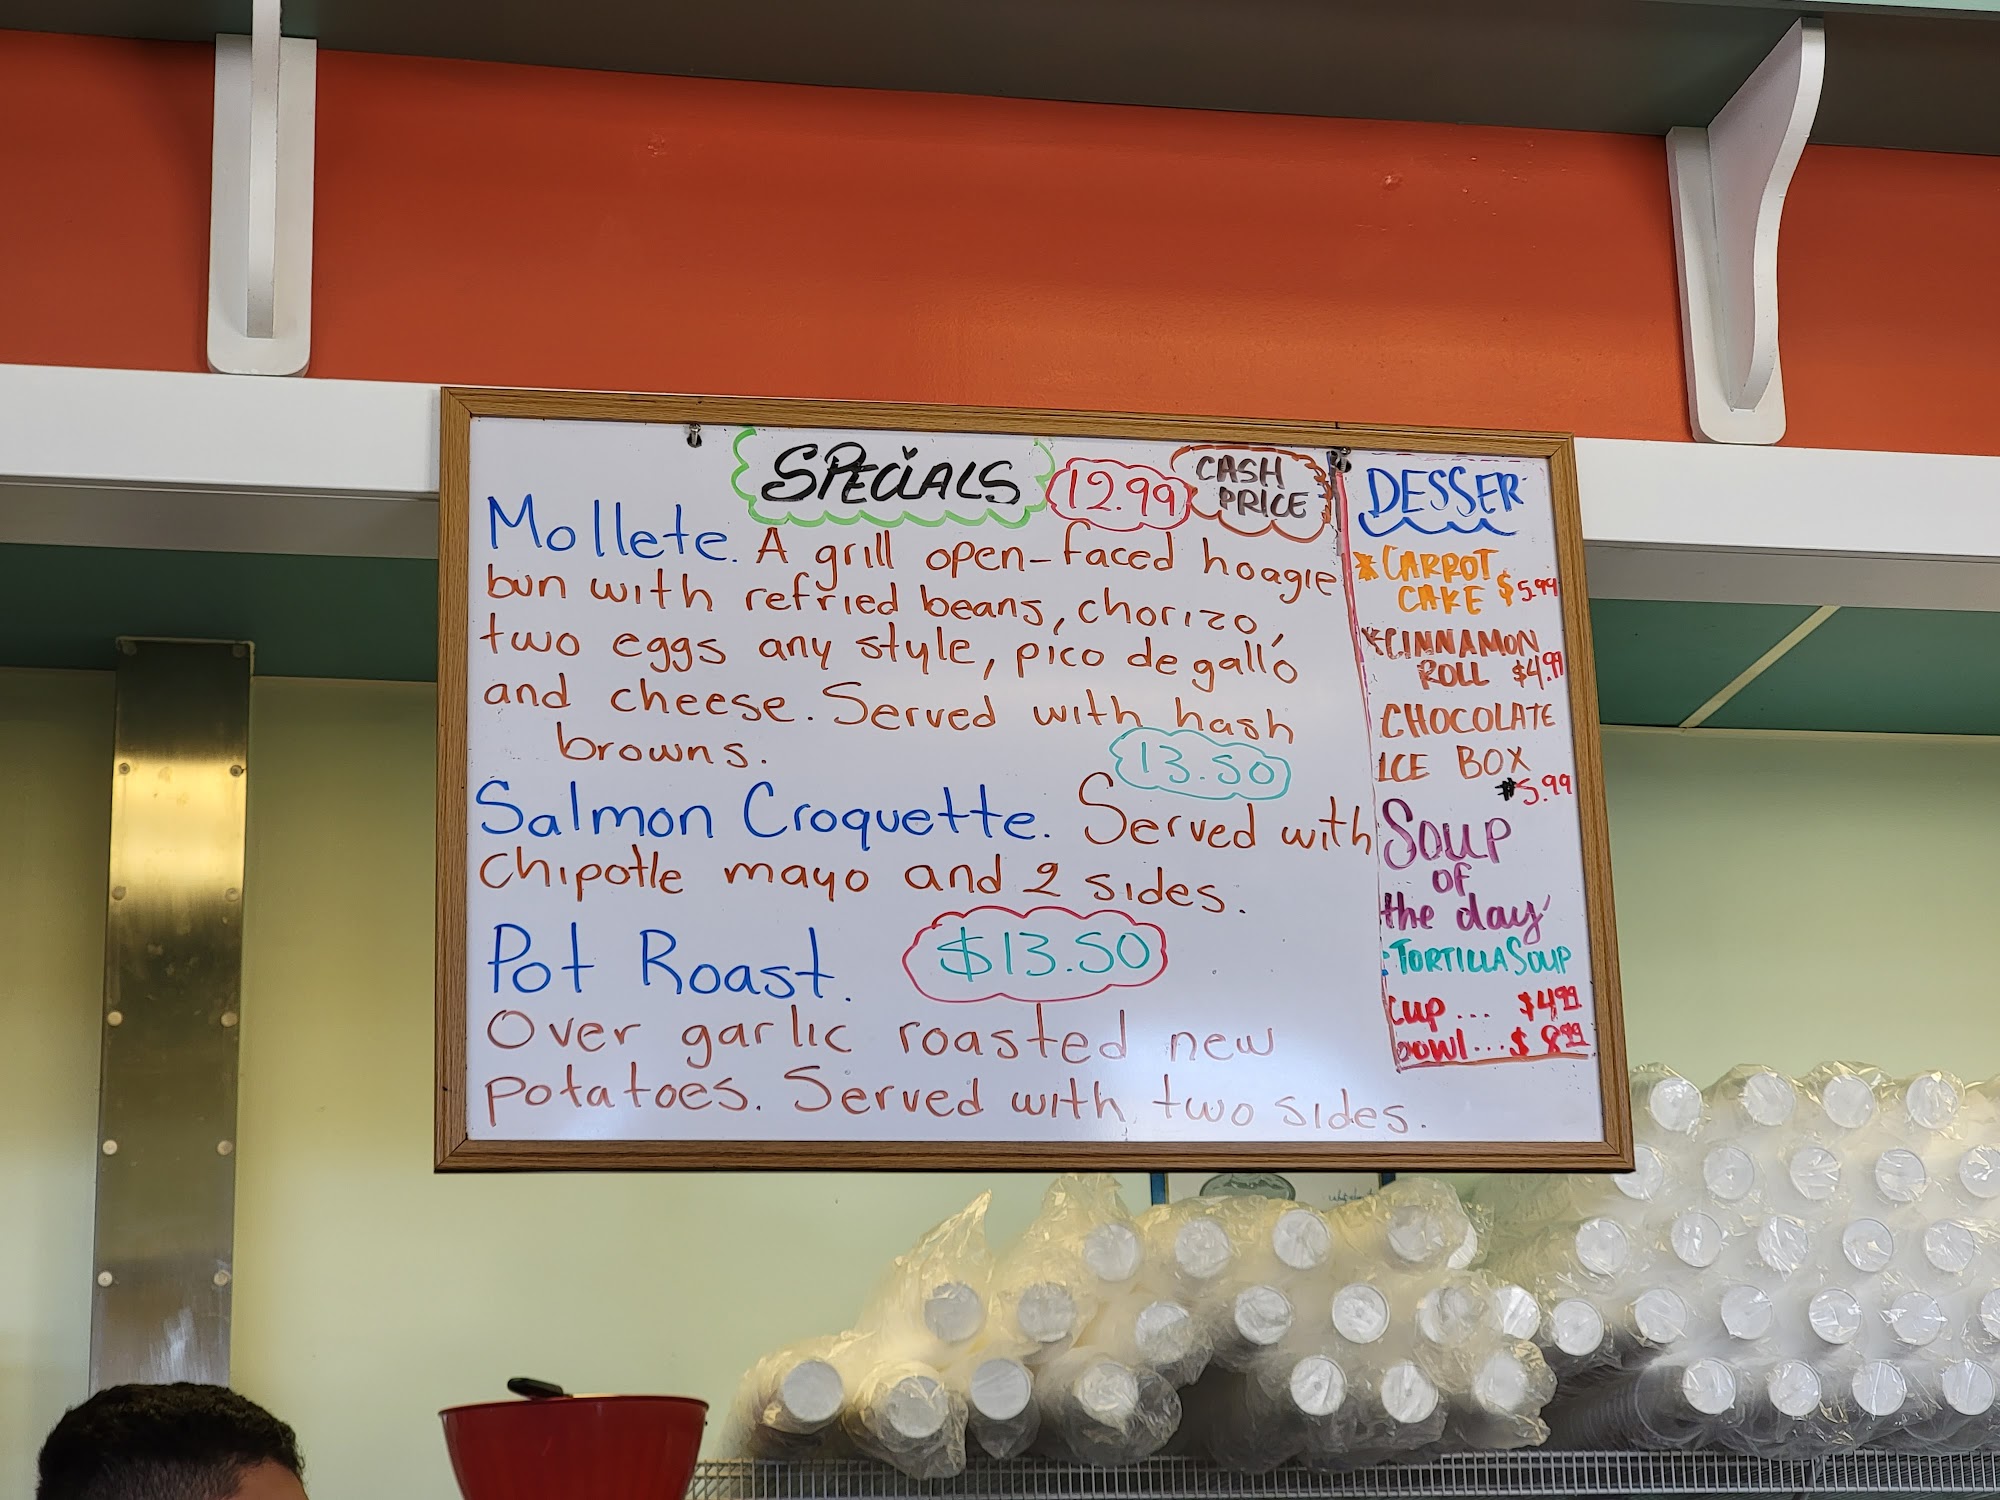 SPECIALS
12.99
CASH
PRICE
Mollete. A grill open-faced hoagie
bun with refried beans, chorizo,
two eggs any style, pico de gallo
and cheese. Served with hash
browns.
13.50
Salmon Croquette. Served with
chipotle mayo and 2 sides.
Pot Roast. $13.50
Over garlic roasted new
potatoes. Served with two sides.
DESSER
*CARROT
CAKE $5.99
*CINNAMON
ROLL $4.99
CHOCOLATE
ICE BOX
$5.99
Soup
of
the day
:TORTILLA SOUP
cup... $4.99
bowl...$8.99